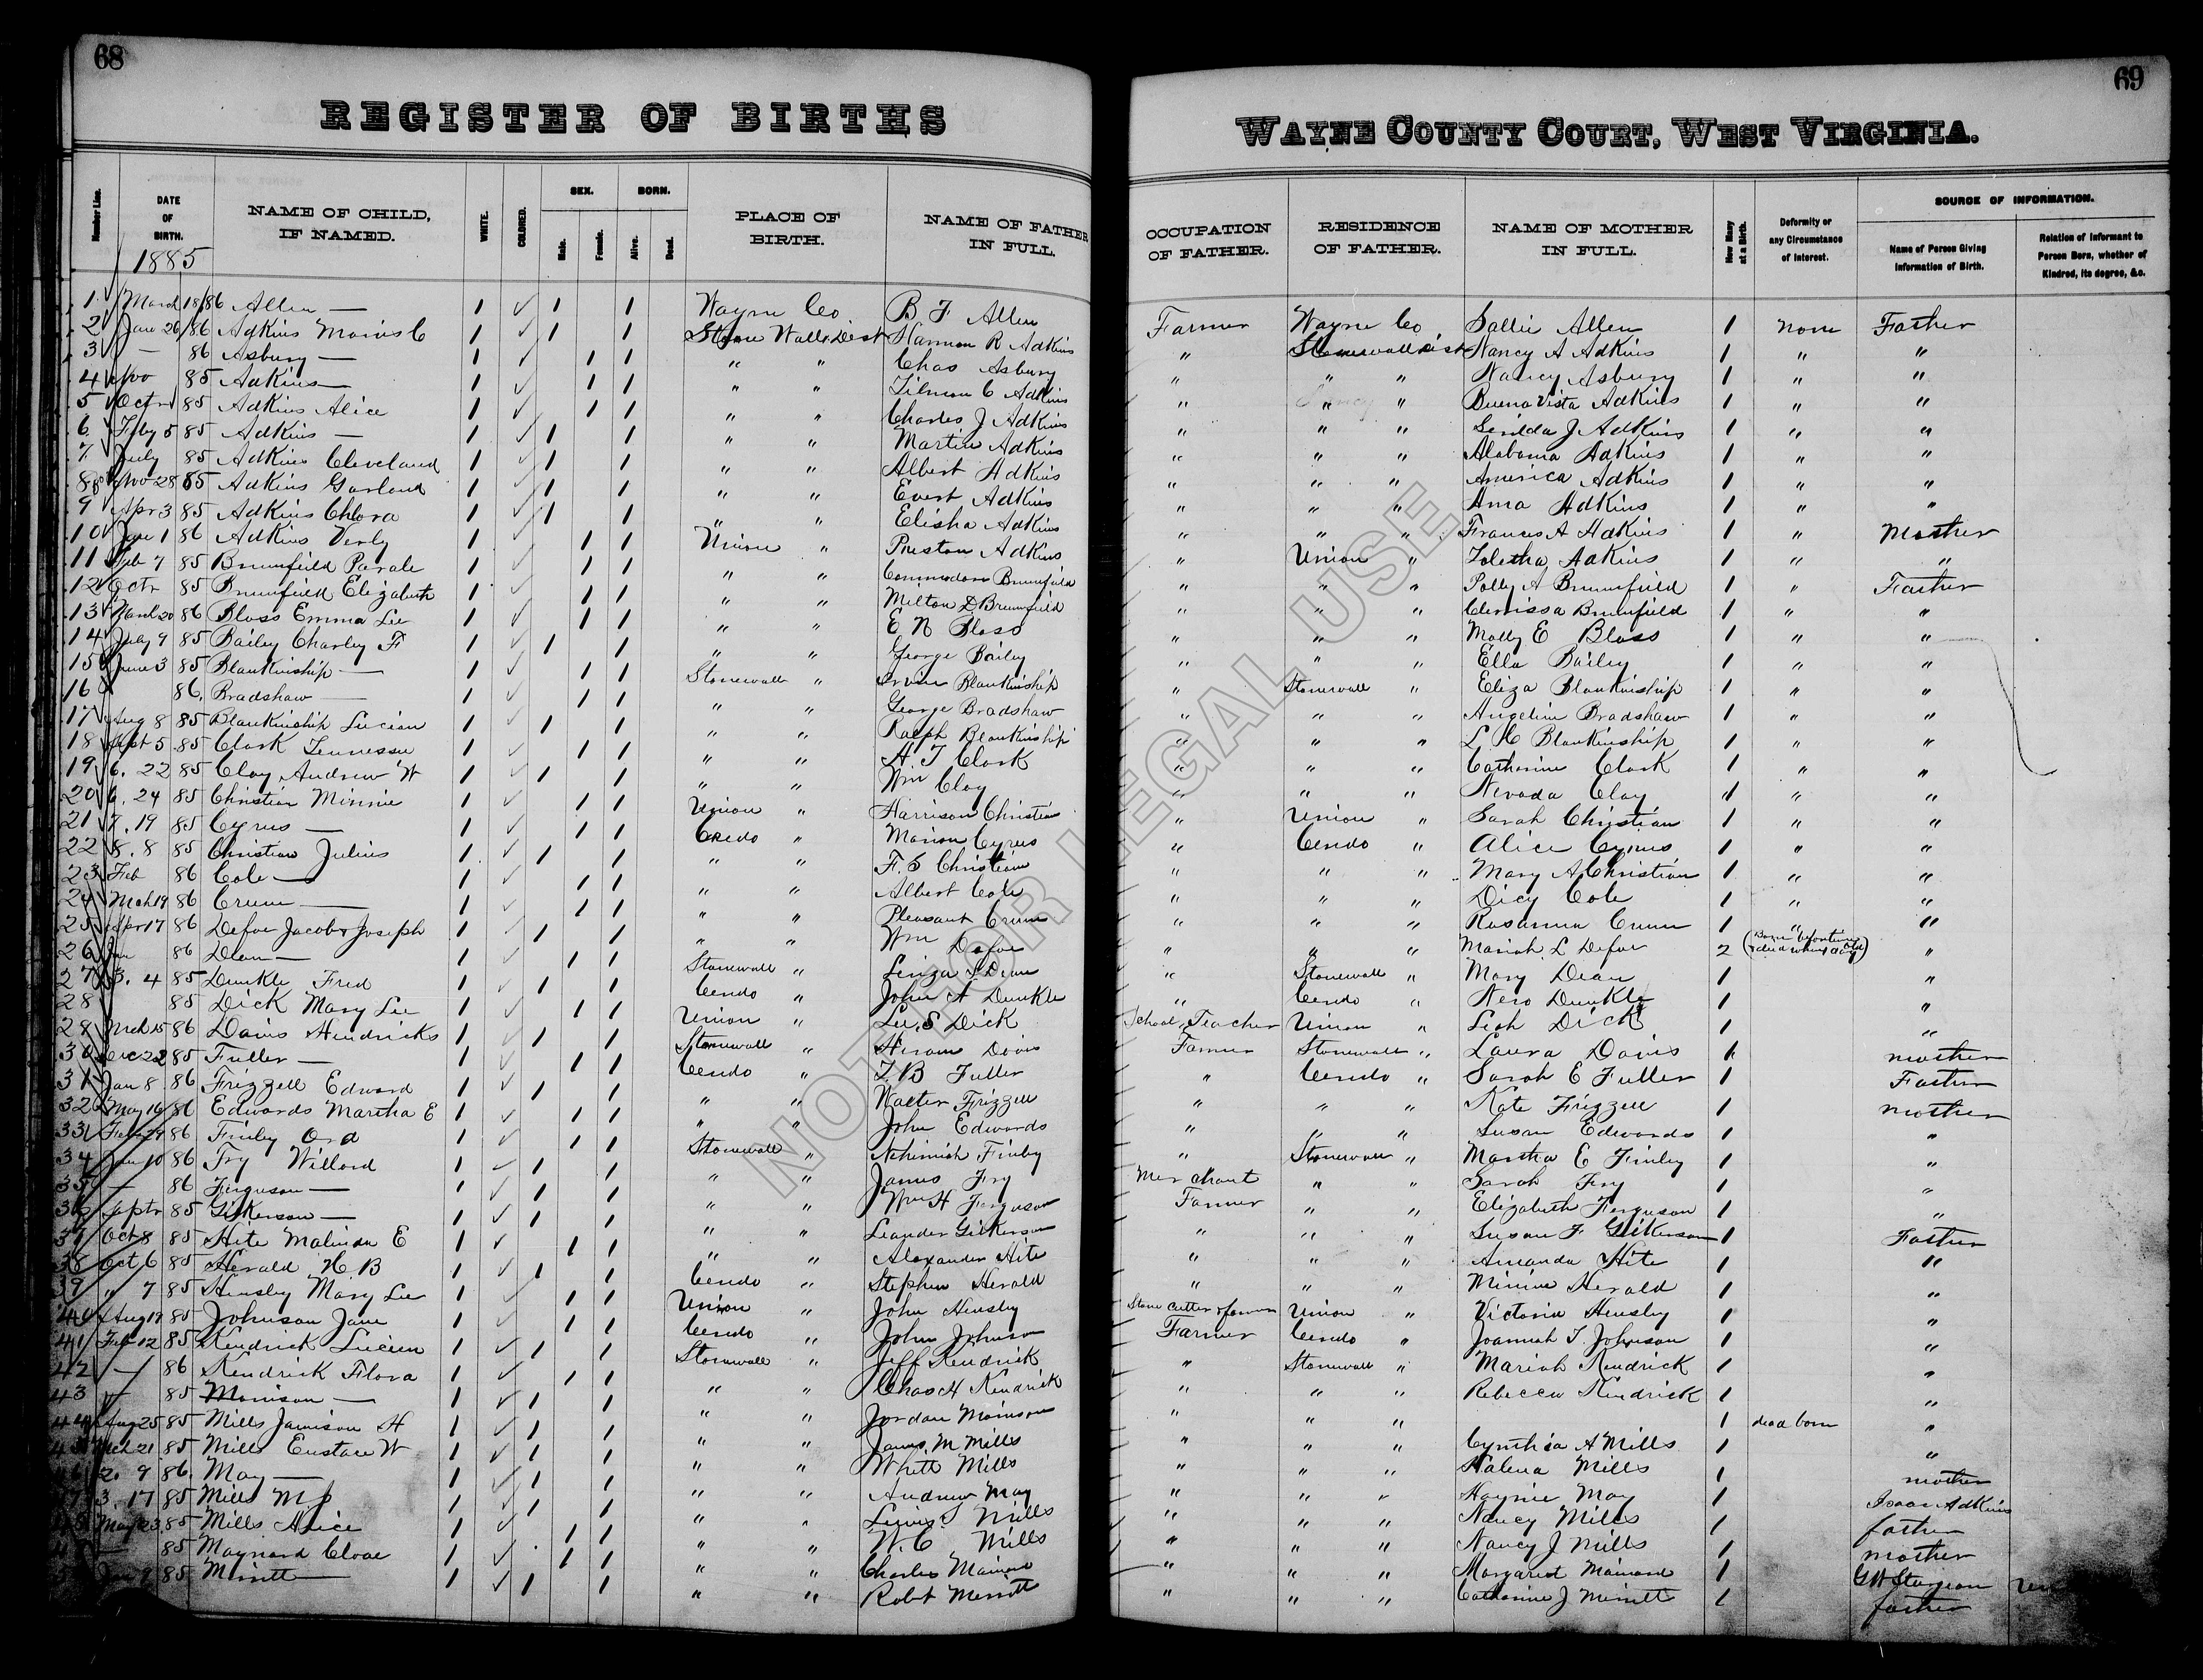 68
REGISTER OF BIRTHS
Number Line.
DATE OF BIRTH.
1885
NAME OF CHILD, IF NAMED.
WHITE.
COLORED.
SEX.
Male.
Female.
BORN.
Alive.
Dead.
PLACE OF BIRTH.
NAME OF FATHER IN FULL.
1 March 18/86 Allen — 1 ✓ 1 1 Wayne Co B F Allen
2 Jan 26/86 Adkins Morris C 1 ✓ 1 1 Stone Wall Dist Harmon R Adkins
3 — 86 Asbury — 1 ✓ 1 1 " " Chas Asbury
4 Nov 85 Adkins — 1 ✓ 1 1 " " Tilmon C Adkins
5 Octr 85 Adkins Alice 1 ✓ 1 1 " " Charles J Adkins
6 Feby 5 85 Adkins — 1 ✓ 1 1 " " Martin Adkins
7 July 85 Adkins Cleveland 1 ✓ 1 1 " " Albert Adkins
8 Nov 28 85 Adkins Garland 1 ✓ 1 1 " " Evert Adkins
9 Apr 3 85 Adkins Chlora 1 ✓ 1 1 " " Elisha Adkins
10 1 86 Adkins Verly 1 ✓ 1 1 Union " Preston Adkins
11 Feb 7 85 Brumfield 1 ✓ 1 1 " " Commodore Brumfield
12 Octr 85 Brumfield Elizabeth 1 ✓ 1 1 " " Milton D Brumfield
13 March 20 86 Bloss Emma Lee 1 ✓ 1 1 " " E N Bloss
14 9 85 Bailey Charley F 1 ✓ 1 1 " " George Bailey
15 June 3 85 Blankinship — 1 ✓ 1 1 Stonewall " Irvin Blankinship
16 86. Bradshaw — 1 ✓ 1 1 " " George Bradshaw
17 Aug 8 85 Blankinship Lucian 1 ✓ 1 1 " " Ralph Blankinship
18 Sept 5 85 Clark Tennessee 1 ✓ 1 1 " " H T Clark
19 6. 22 85 Clay Andrew W 1 ✓ 1 1 " " Wm Clay
20 6. 24 85 Christian Minnie 1 ✓ 1 1 Union " Harrison Christian
21 7. 19 85 Cyrus — 1 ✓ 1 1 Ceredo " Marion Cyrus
22 8. 8 85 Christian Julius 1 ✓ 1 1 " " F. S Christian
23 Feb 86 Cole — 1 ✓ 1 1 " " Albert Cole
24 Mch 19 86 Crum — 1 ✓ 1 1 " " Pleasant Crum
25 Apr 17 86 Defoe Jacob & Joseph 1 ✓ 1 1 " " Wm Defoe
26 Jan 86 Dean — 1 ✓ 1 1 Stonewall " Dean
27 3. 4 85 Dunkle Fred 1 ✓ 1 1 Ceredo " John A Dunkle
28 85 Dick Mary Lee 1 ✓ 1 1 Union " Lee S Dick
28 Mch 15 86 Davis Hendricks 1 ✓ 1 1 Stonewall " Hiram Davis
30 Dec 22 85 Fuller — 1 ✓ 1 1 Ceredo " T. B Fuller
31 Jan 8 86 Frizzell Edward 1 ✓ 1 1 " " Walter Frizzell
32 May 16 86 Edwards Martha E 1 ✓ 1 1 " " John Edwards
33 Feb 86 Finley Ora 1 ✓ 1 1 Stonewall " Nehimiah Finley
34 Jan 10 86 Fry Willard 1 ✓ 1 1 " " James Fry
35 — 86 Ferguson — 1 ✓ 1 1 " " Wm H Ferguson
36 Septr 85 Gilkerson — 1 ✓ 1 1 " " Leander Gilkerson
37 Oct 8 85 Hite Malinda E 1 ✓ 1 1 " " Alexander Hite
38 Oct 6 85 Herald H B 1 ✓ 1 1 Ceredo " Stephen Herald
39 " 7 85 Hensley Mary Lee 1 ✓ 1 1 Union " John Hensley
40 Aug 19 85 Johnson Jane 1 ✓ 1 1 Ceredo " John Johnson
41 Feb 12 85 Kendrick Lucien 1 ✓ 1 1 Stonewall " Jeff Kendrick
42 — 86 Kendrick Flora 1 ✓ 1 1 " " Chas H Kendrick
43 85 Morrison — 1 ✓ 1 1 " " Jordan Morrison
44 Aug 25 85 Mills Jamison H 1 ✓ 1 1 " " James M Mills
45 Mch 21 85 Mills Eustace W 1 ✓ 1 1 " " White Mills
46 2. 9 86. May — 1 ✓ 1 1 " " Andrew May
47 3. 17 85 Mills M. J 1 ✓ 1 1 " " Lewis S Mills
48 May 23 85 Mills Alice 1 ✓ 1 1 " " W. C Mills
85 Maynard Cloae 1 ✓ 1 1 " " Charles Mainard
85 Merritt — 1 ✓ 1 1 " " Robt Merritt
69
WAYNE COUNTY COURT, WEST VIRGINIA.
OCCUPATION OF FATHER.
RESIDENCE OF FATHER.
NAME OF MOTHER IN FULL.
How Many at a Birth.
Deformity or any Circumstance of Interest.
SOURCE OF INFORMATION.
Name of Person Giving Information of Birth.
Relation of Informant to Person Born, whether of Kindred, its degree, &c.
Farmer Wayne Co Sallie Allen 1 None Father
" Stonewall Dist Nancy A Adkins 1 " "
" " " Nancy Asbury 1 " "
" " " Buena Vista Adkins 1 " "
" " " Serilda J Adkins 1 " "
" " " Alabama Adkins 1 " "
" " " America Adkins 1 " "
" " " Ama Adkins 1 " "
" " " Frances A Adkins 1 " Mother
" Union " Adkins 1 " "
" " " Polly A Brumfield 1 " Father
" " " Clerissa Brumfield 1 " "
" " " Molly E Bloss 1 " "
" " " Ella Bailey 1 " "
" Stonewall " Eliza Blankinship 1 " "
" " " Angeline Bradshaw 1 " "
" " " L C Blankinship 1 " "
" " " Catharine Clark 1 " "
" " " Nevada Clay 1 " "
" Union " Sarah Christian 1 " "
" Ceredo " Alice Cyrus 1 " "
" " " Mary A Christian 1 " "
" " " Dicy Cole 1 " "
" " " Rosanna Crum 1 " "
" " " Mariah L Defoe 2 "
" Stonewall " Mary Dean 1 "
" Ceredo " Nero Dunkle 1 "
School Teacher Union " Leah Dick 1 "
Farmer Stonewall " Laura Davis 1 mother
" Ceredo " Sarah E Fuller 1 Father
" " " Kate Frizzell 1 mother
" " " Susan Edwards 1 "
" Stonewall " Martha E Finley 1 "
Merchant " " Sarah Fry 1 "
Farmer " " Elizabeth Ferguson 1 "
" " " Susan F Gilkerson 1 Father
" " " Amanda Hite 1 "
" " " Minnie Herald 1 "
Stone cutter & farmer Union " Victoria Hensley 1 "
Farmer Ceredo " Joannah T. Johnson 1 "
" Stonewall " Mariah Kendrick 1 "
" " " Rebecca Kendrick 1 "
" " " 1 dead born "
" " " Cynthia A Mills 1 "
" " " Halena Mills 1 mother
" " " May 1 Isaac Adkins
" " " Nancy Mills 1 father
" " " Nancy J Mills 1 mother
" " " Margaret Mainard 1 G W Sturgeon
" " " Catharine J Merritt 1 father
NOT FOR LEGAL USE